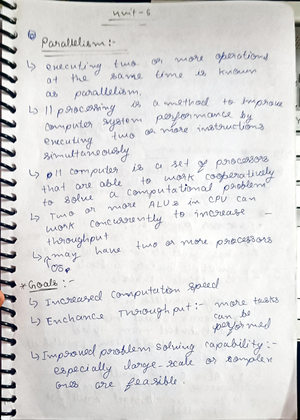 Unit-6
Parallelism:-
↳ executing two or more operations
at the same time is known
as parallelism.
↳ || processing is a method to improve
computer system performance by
executing two or more instructions
simultaneously
↳ p|| computer is a set of processors
that are able to work cooperatively
to solve a computational problem
↳ Two or more ALUs in CPU can
work concurrently to increase -
throughput
↳ may have two or more processors
* Goals:-
↳ Increased Computation Speed
↳ Enchance Throughput:- more tasks
can be
performed
↳ Improved problem solving capability:-
especially large-scale or complex
ones are feasible.